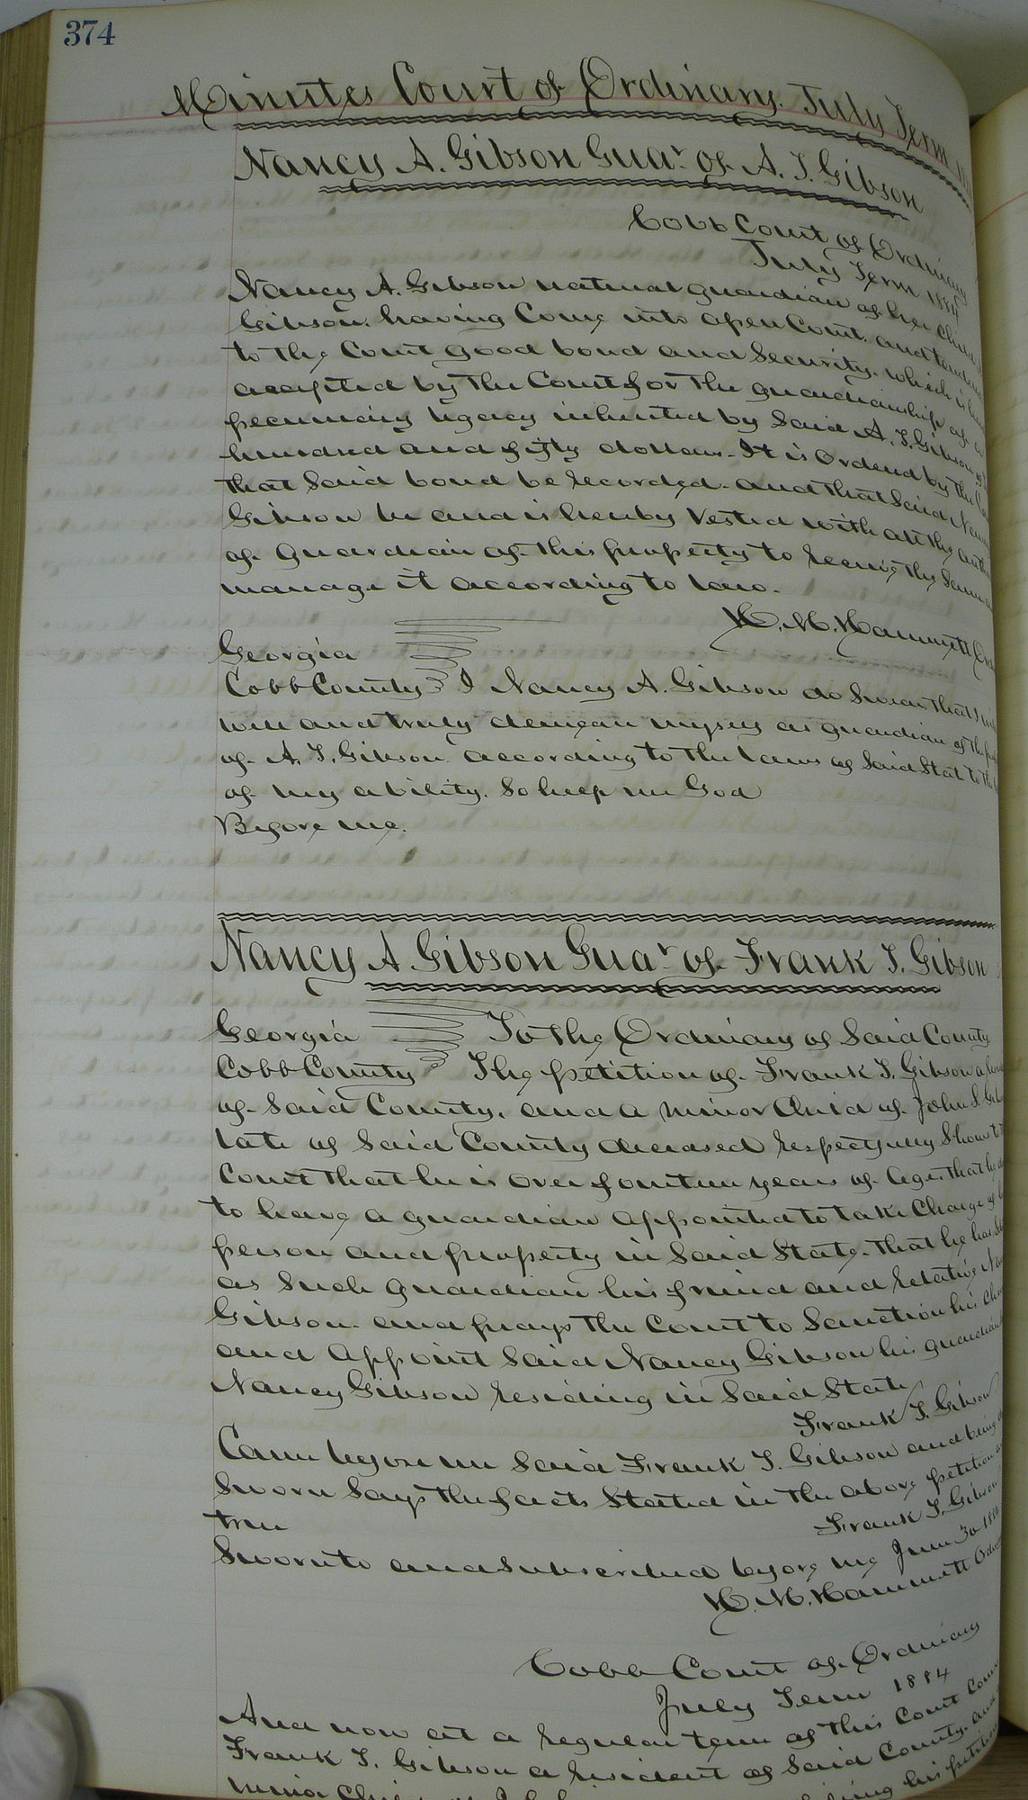 374
Minutes Court of Ordinary. July Term
Nancy A. Gibson Guar. of A. J. Gibson
Cobb Court of Ordinary
July Term 1884
Nancy A. Gibson natural guardian of her child
Gibson. having Come into open Court. and
to the Court good bond and Security. which is
accepted by the Court for the guardianship of
pecuniary legacy inherited by Said A. J. Gibson of
hundred and fifty dollars. It is Ordered by the
that Said bond be recorded. and that Said
Gibson be and is hereby Vested with all the
of Guardian of this property to receive the Same
manage it according to law.
H. M. Hammett
Georgia
Cobb County I Nancy A. Gibson do Swear that I
well and truly demean myself as guardian of the
of A. J. Gibson according to the laws of Said Stat to the
of my ability. So help me God
Before me.
Nancy A Gibson Guar. of Frank J. Gibson
Georgia To the Ordinary of Said County
Cobb County The petition of Frank J. Gibson a
of Said County. and a minor Child of John S.
late of Said County deceased respectfully Shows to
Court that he is over fourteen years of age. that he
to have a guardian appointed to take Charge of
person and property in Said State. that he has
as Such Guardian his friend and relative
Gibson. and prays the Court to Sanction his
and appoint Said Nancy Gibson his guardian
Nancy Gibson residing in Said State
Frank J. Gibson
Came before me Said Frank J. Gibson and being
Sworn Says the facts Stated in the above petition
true
Frank J. Gibson
Sworn to and Subscribed before me June 30
H. M. Hammett
Cobb Court of Ordinary
July Term 1884
And now at a regular term of this Court
Frank J. Gibson a resident of Said County. and
his petition